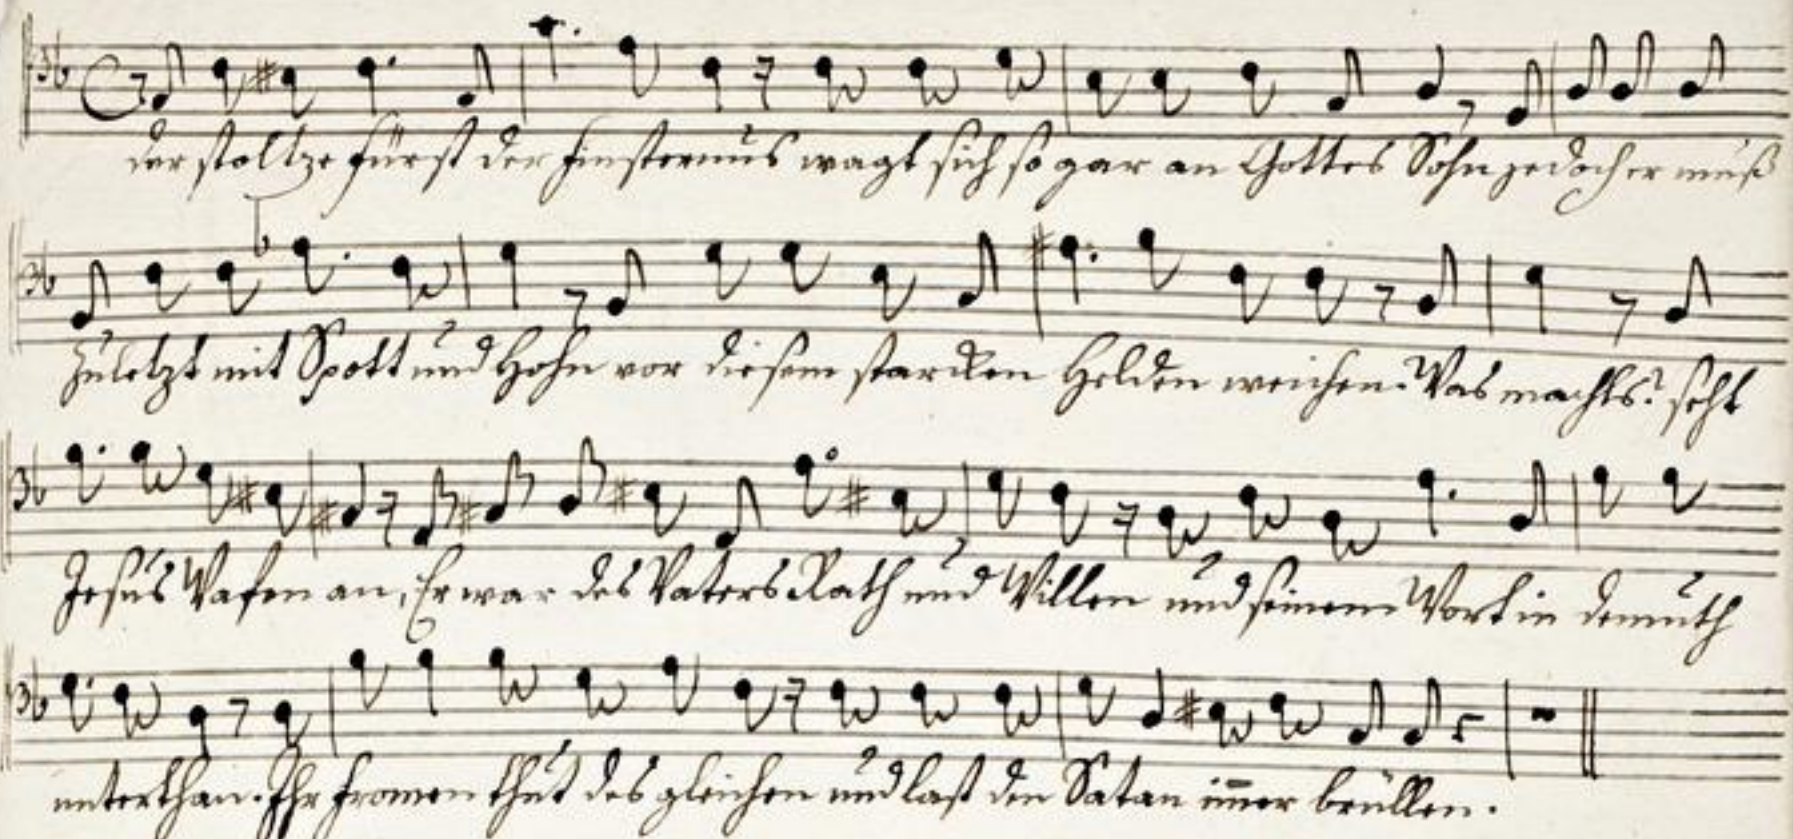 der stoltze Fürst der Finsternüs wagt sich so gar an Gottes Sohn jedoch er muß
zuletzt mit Spott und Hohn vor diesem starcken Helden weichen. Was machts? seht
Jesus Wafen an, Er war des Vaters Rath und Willen und seinem Wort in demuth
unterthan. Ihr fromen thut des gleichen und last den Satan im̅er brüllen.